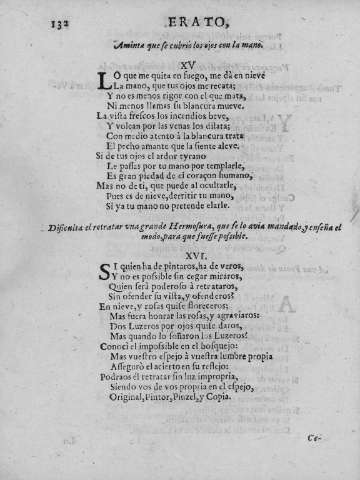 132 ERATO,
Aminta que se cubriò los ojos con la mano.
XV
LO que me quita en fuego, me dà en nieve
La mano, que tus ojos me recata;
Y no es menos rigor con el que mata,
Ni menos llamas su blancura mueve.
La vista frescos los incendios beve,
Y volcan por las venas los dilata;
Con miedo atento à la blancura trata
El pecho amante que la siente aleve.
Si de tus ojos el ardor tyrano
Le passas por tu mano por templarle,
Es gran piedad de el coraçon humano,
Mas no de ti, que puede al ocultarle,
Pues es de nieve, derritir tu mano,
Si ya tu mano no pretende elarle.
Dificulta el retratar vna grande Hermosura, que se lo avia mandado, y enseña el
modo, para que fuesse possible.
XVI.
SI quien ha de pintaros, ha de veros,
Y no es possible sin cegar miraros,
Quien serà poderoso à retrataros,
Sin ofender su vista, y ofenderos?
En nieve, y rosas quise floreceros;
Mas fuera honrar las rosas, y agraviaros:
Dos Luzeros por ojos quise daros,
Mas quando lo soñaron los Luzeros?
Conoci el impossible en el bosquejo:
Mas vuestro espejo à vuestra lumbre propia
Assegurò el acierto en su reflejo:
Podraos èl retratar sin luz impropria,
Siendo vos de vos propria en el espejo,
Original, Pintor, Pinzel, y Copia.
Ce-